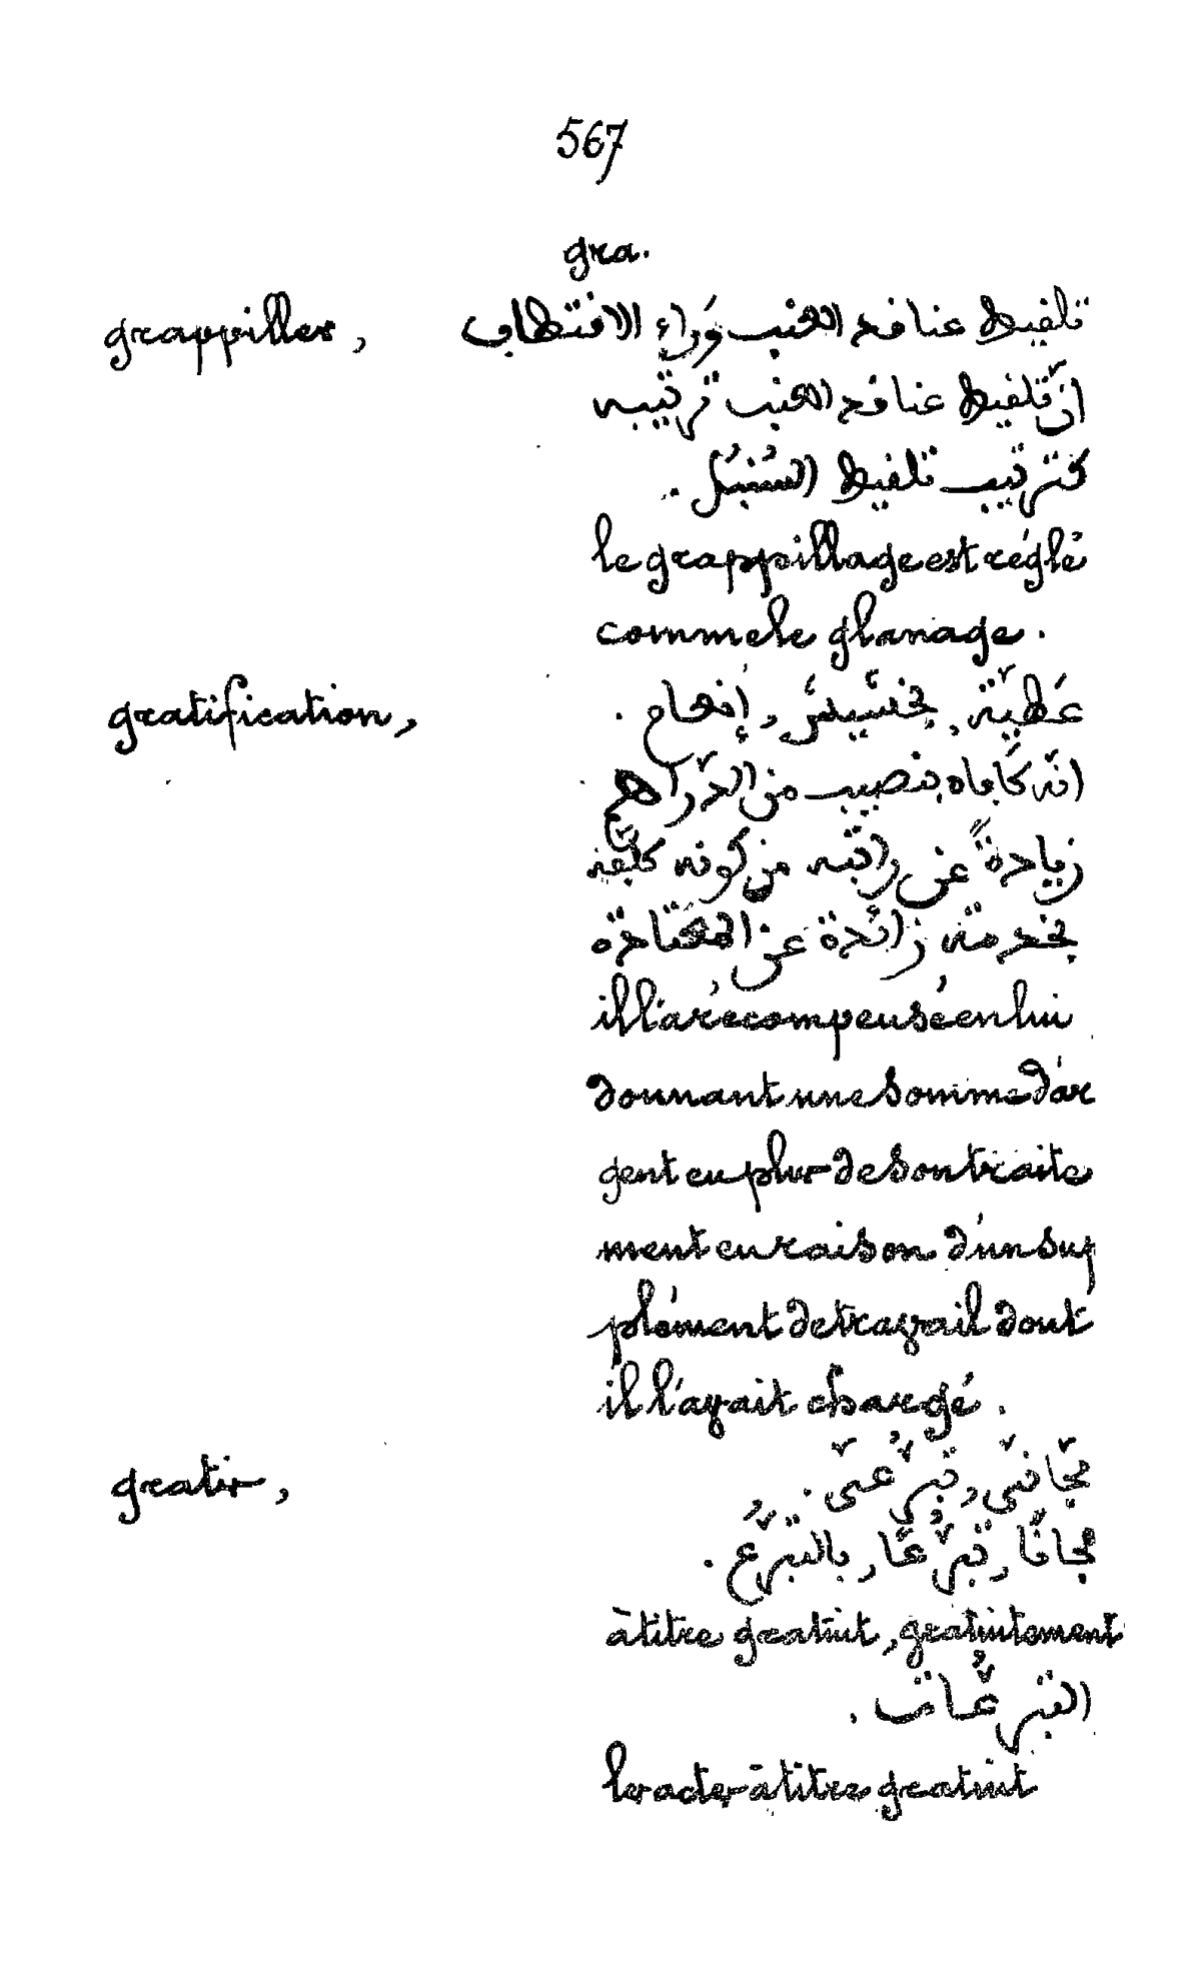 567
gra.
grappiller, تلقيط عناقد العنب وَراء الاقتطاف
انّ تلقيط عناقد العنب ترتيبه
كترتيب تلقيط السُنبُل.
le grappillage est réglé
comme le glanage.
gratification, عَطيّة, بخشيش, إنعام.
انّه كَافاه بنصيب من الدّراهم
زيادةً عن راتبه من كونه كلّفه
بخدمة زائدة عن المعتادة
il l'a récompensé en lui
donnant une somme d'ar
gent en plus de son traite
ment en raison d'un sup
plément de travail dont
il l'avait chargé.
gratis, مجّانى, تبرّعى.
مجانًا, تبرّعًا, بالتبرّع.
à titre gratuit, gratuitement
التبرّعات.
les actes à titre gratuit